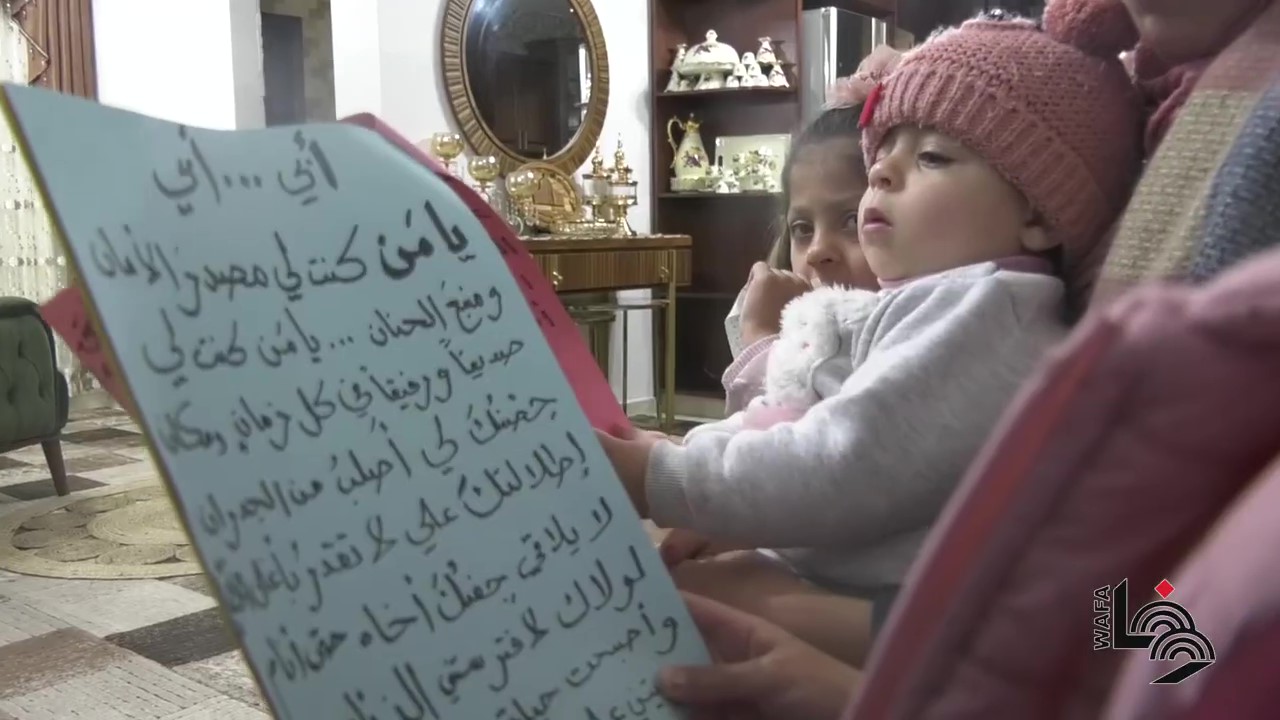 أبي ... أبي
يا مَن كنت لي مصدرَ الأمان
ومنبعَ الحنان ... يا مَن كنت لي
صديقاً ورفيقاً في كل زمانٍ ومكان
حِضنُكَ لي أصلبُ من الجدران
إطلالتكَ علي لا تقدرُ بأعلى
لا يلاقي جفنُكَ أخاه حتى أنام
لولاك لافترستني
وأصبحت
WAFA
وفا